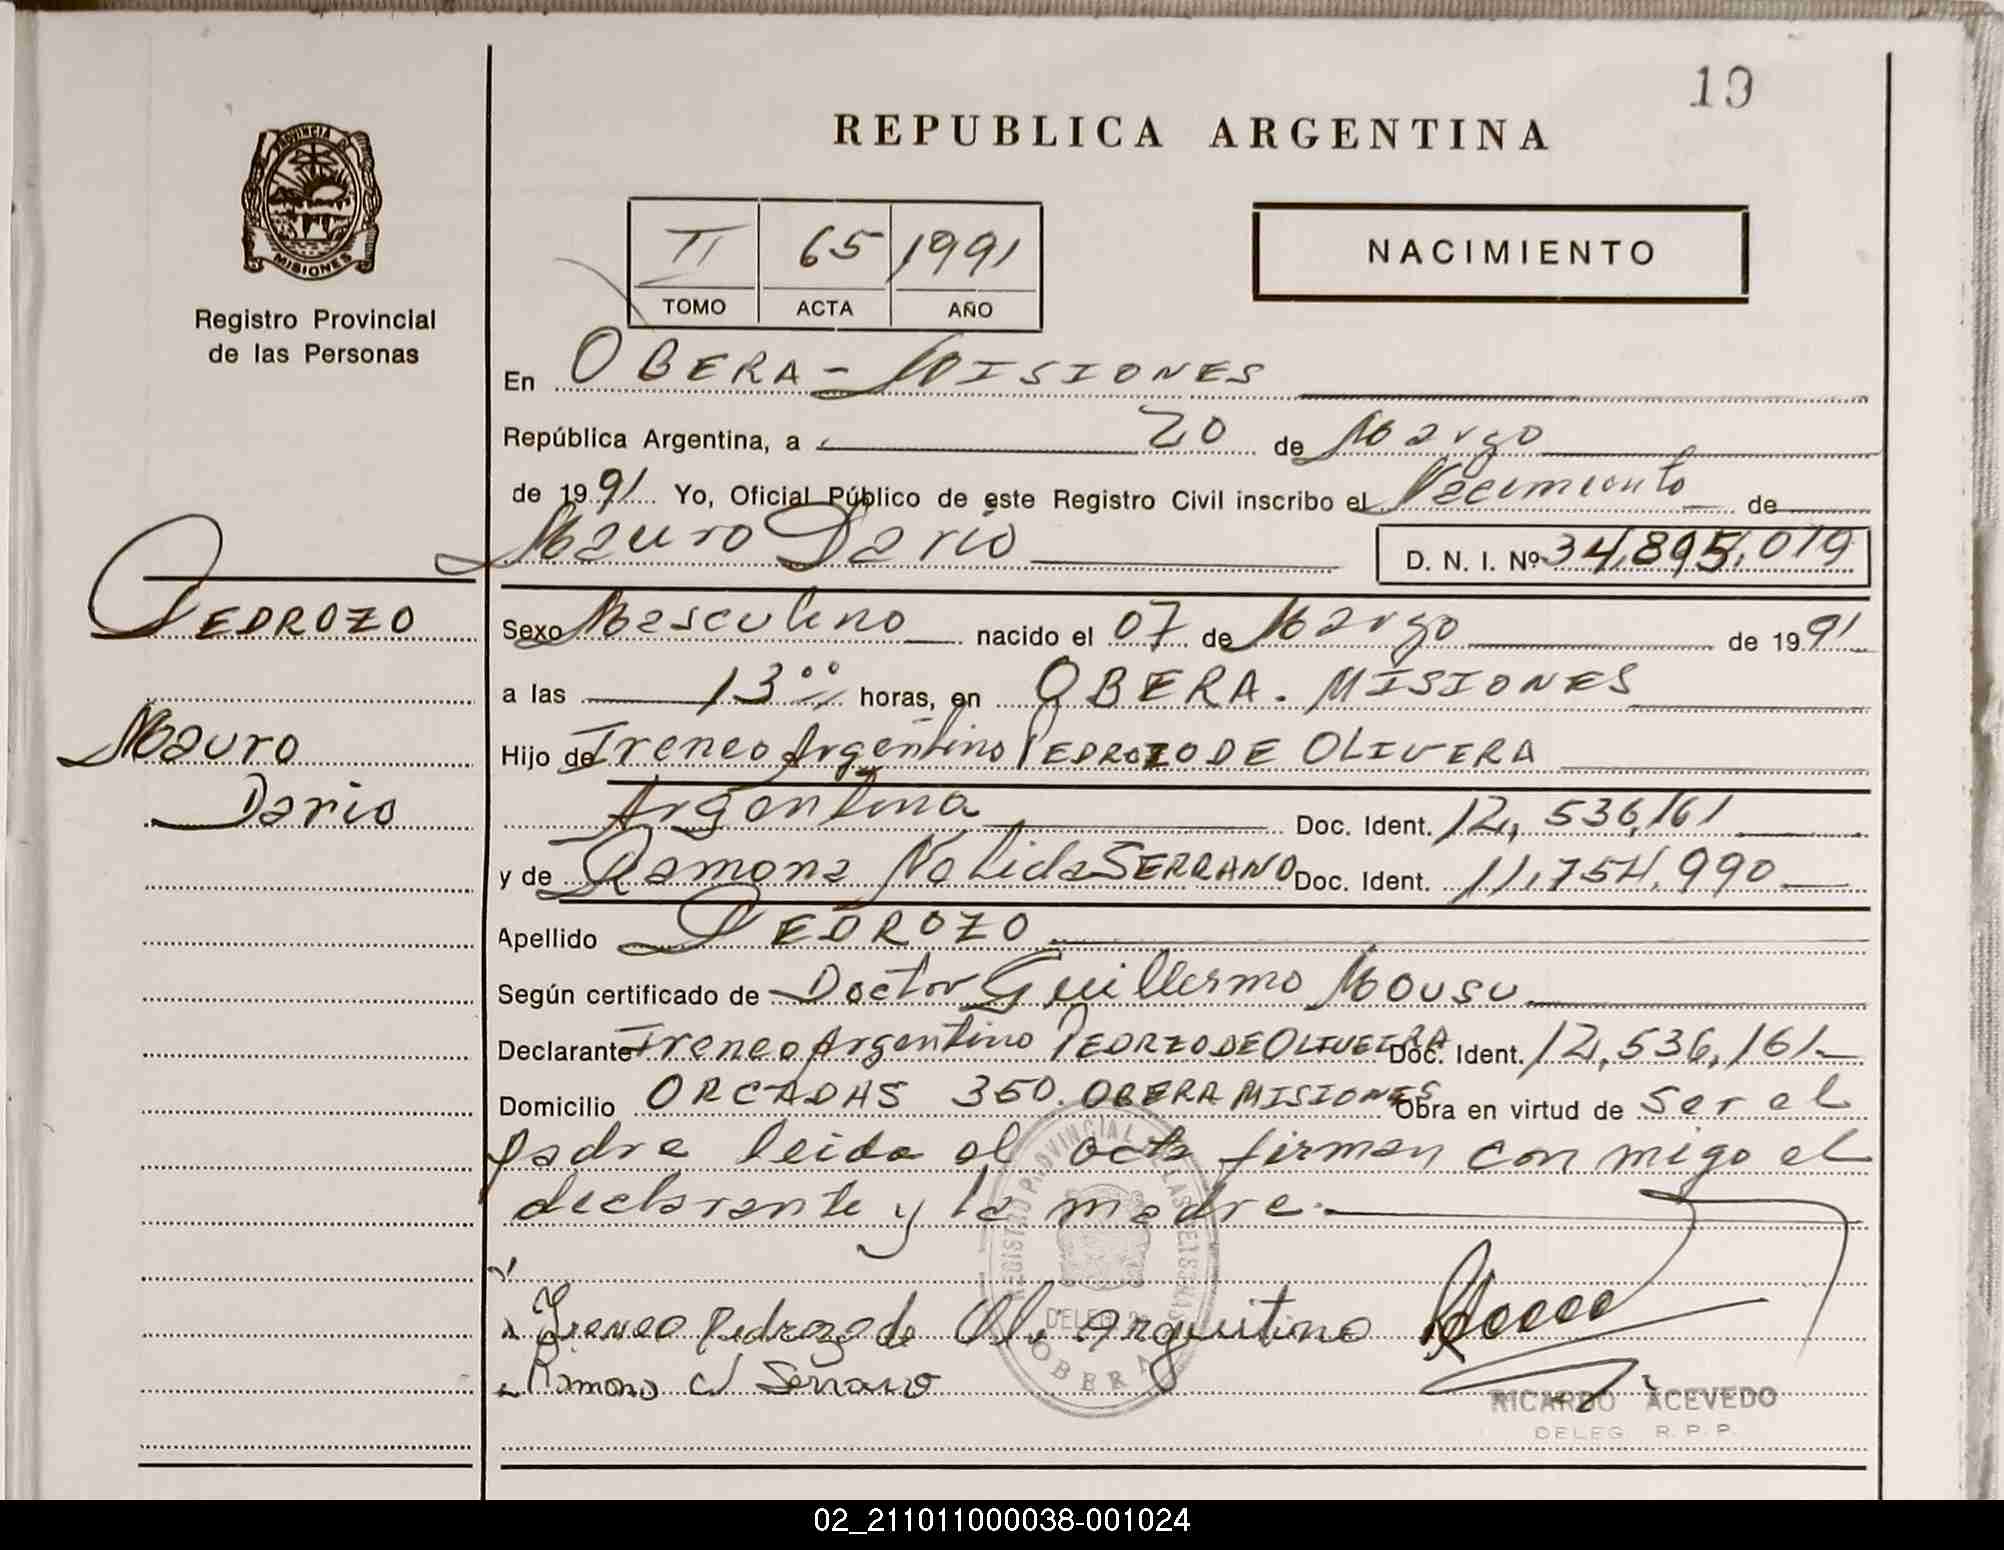 19
REPUBLICA ARGENTINA
PROVINCIA DE
MISIONES
Registro Provincial
de las Personas
II 65 1991
TOMO ACTA AÑO
NACIMIENTO
En OBERA - MISIONES
República Argentina, a 20 de Marzo
de 1991 Yo, Oficial Público de este Registro Civil inscribo el Nacimiento de
Mauro Dario D. N. I. Nº 34,895,019
PEDROZO
Mauro
Dario
Sexo Masculino nacido el 07 de Marzo de 1991
a las 13°° horas, en OBERA. MISIONES
Hijo de Ireneo Argentino PEDROZO DE OLIVERA
Argentina Doc. Ident. 12,536,161
y de Ramona Nelida SERRANO Doc. Ident. 11,754,990
Apellido PEDROZO
Según certificado de Doctor Guillermo Mousu
Declarante Ireneo Argentino PEDRZO DE OLIVEIRA Doc. Ident. 12,536,161
Domicilio ORCADAS 350. OBERA MISIONES Obra en virtud de ser el
padre leida el acta firman con migo el
declarante y la madre.
Ireneo Pedrozo de Oli. Argentino
Ramona N Serrano
REGISTRO PROVINCIAL DE LAS PERSONAS
DELEG.
OBERA
RICARDO ACEVEDO
DELEG R. P. P.
02_211011000038-001024